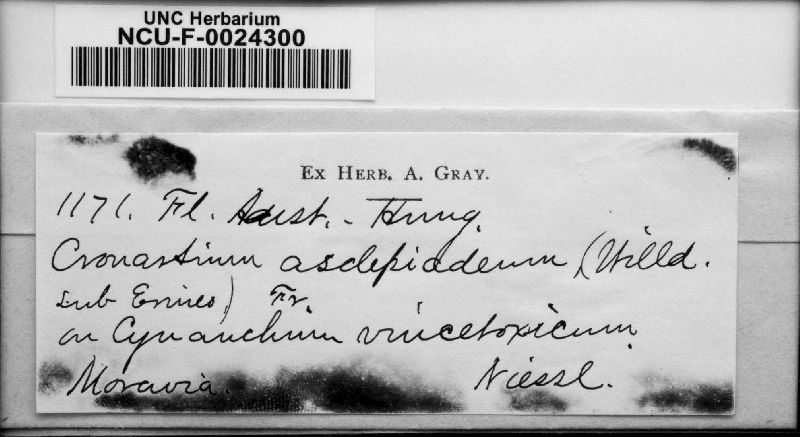 UNC Herbarium
NCU-F-0024300
Ex Herb. A. Gray.
1171. Fl. Aust. - Hung.
Cronartium asclepiadeum (Willd.
sub Erineo) Fr.
on Cynanchum vincetoxicum
Moravia. Niessl.